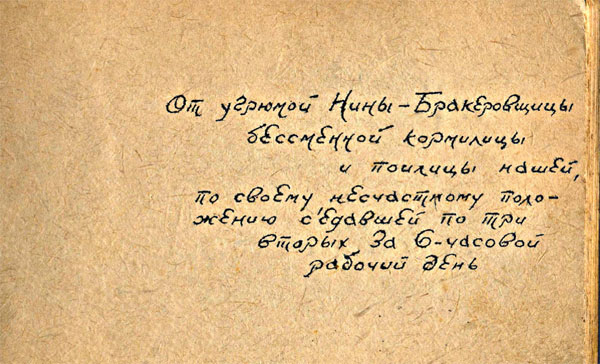 От угрюмой Нины-Бракеровщицы
бессменной кормилицы
и поилицы нашей,
по своему несчастному поло-
жению с'едавшей по три
вторых за 6-часовой
рабочий день